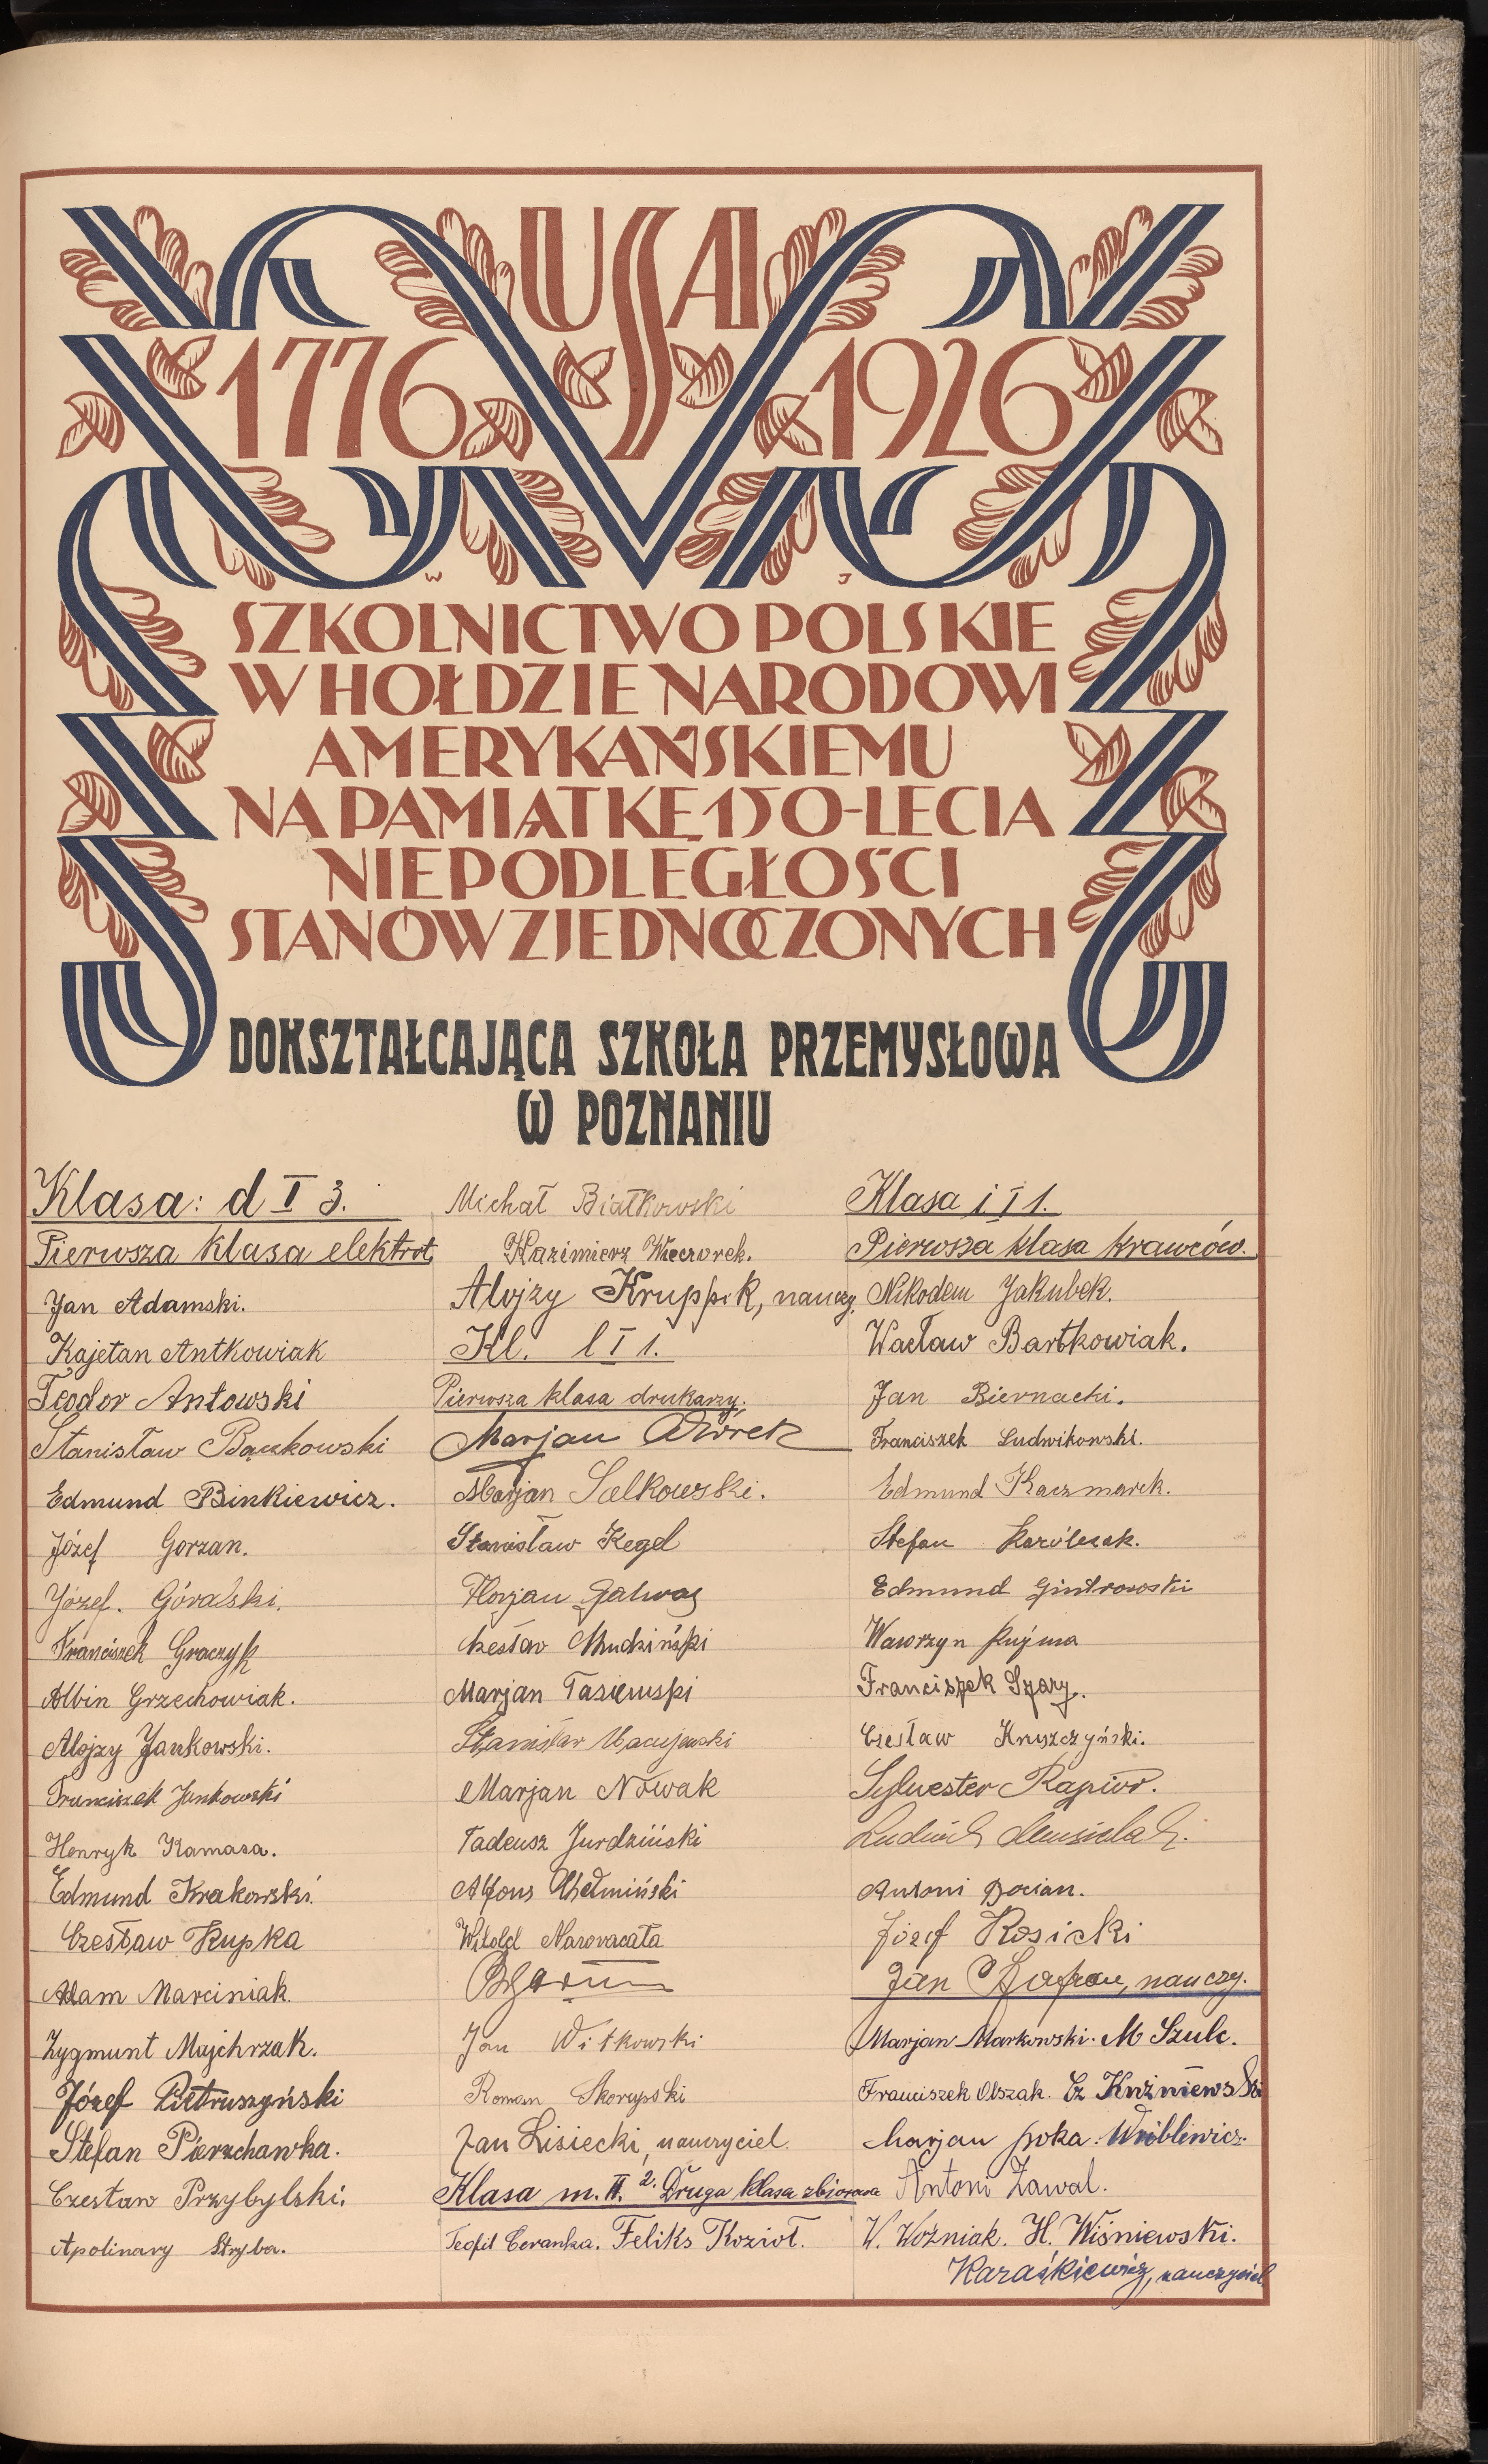 USA
1776 1926
W J
SZKOLNICTWO POLSKIE
W HOŁDZIE NARODOWI
AMERYKAŃSKIEMU
NA PAMIĄTKĘ 150-LECIA
NIEPODLEGŁOŚCI
STANÓW ZJEDNOCZONYCH
DOKSZTAŁCAJĄCA SZKOŁA PRZEMYSŁOWA
W POZNANIU
Klasa: d I 3.
Pierwsza klasa elektrot.
Jan Adamski.
Kajetan Antkowiak
Teodor Antowski
Stanisław Bączkowski
Edmund Binkiewicz.
Józef Gorzan.
Józef. Góralski.
Franciszek Graczyk
Albin Grzechowiak.
Alojzy Jankowski.
Franciszek Jankowski
Henryk Kamasa.
Edmund Krakowski
Czesław Kupka
Adam Marciniak.
Zygmunt Majchrzak.
Józef Pietruszyński
Stefan Pierzchawka.
Czesław Przybylski.
Apolinary Stryba.
Michał Białkowski
Kazimierz Wieczorek.
Alojzy Kruppik, nauczy.
Kl. l I 1.
Pierwsza klasa drukarzy.
Marjan
Marjan Salkowski.
Stanisław Kegel
Florjan
Czesław Chudziński
Marjan Tasiemski
Stanisław Maciejewski
Marjan Nowak
Tadeusz Jurdziński
Alfons Chełmiński
Witold
Jan Witkowski
Roman Skorupski
Jan Lisiecki, nauczyciel.
Klasa m. II. 2. Druga klasa zbiorowa
Teofil Ceranka. Feliks Kozioł.
Klasa i I 1.
Pierwsza klasa krawców.
Nikodem Jakubek.
Wacław Bartkowiak.
Jan Biernacki.
Franciszek Ludwikowski.
Edmund Kaczmarek.
Stefan Karólczak.
Edmund Gintrowski
Wawrzyn Kujma
Franciszek Szary.
Czesław Kruszczyński.
Sylwester Rapior.
Ludwik
Antoni Docian.
Józef Kosicki
Jan Szafran, nauczy.
Marjan Markowski. M Szulc.
Franciszek Olszak. Cz Kuźniewski
Marjan Wróblewicz.
Antoni Zawal.
W. Woźniak. H. Wiśniewski.
Karaśkiewicz, nauczyciel